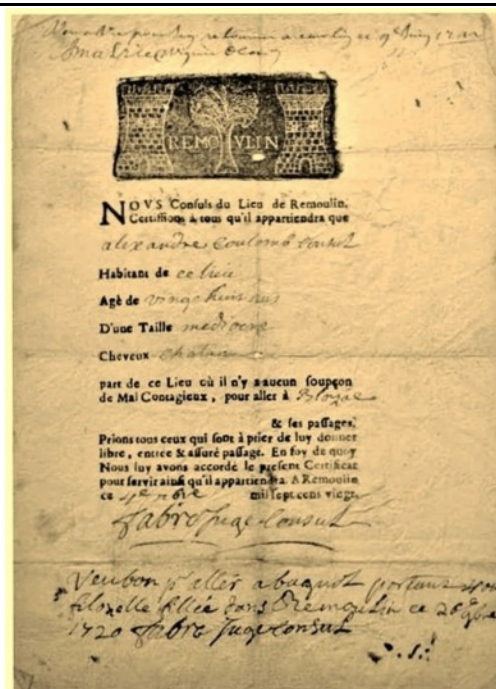 REMOULIN
NOVS Consuls du Lieu de Remoulin,
Certifions à tous qu'il appartiendra que
alexandre coulomb consul
Habitant de ce lieu
Agé de vingt huit ans
D'une Taille mediocre
Cheveux chatain
part de ce Lieu où il n'y a aucun soupçon
de Mal Contagieux, pour aller à
& ses passages,
Prions tous ceux qui sont à prier de luy donner
libre, entrée & assuré passage. En foy de quoy
Nous luy avons accordé le present Certificat
pour servir ainsi qu'il appartiendra. A Remoulin
ce mil sept cens vingt.
fabre juge consul
Veu bon pr aller a portant
filozelle fillée dans Remoulin ce
1720 fabre juge consul